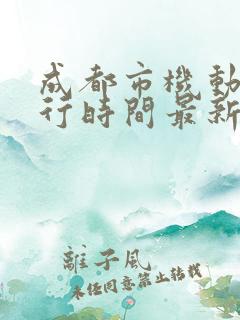 成都市機動
行時間最新
離子風
未经同意禁止转载